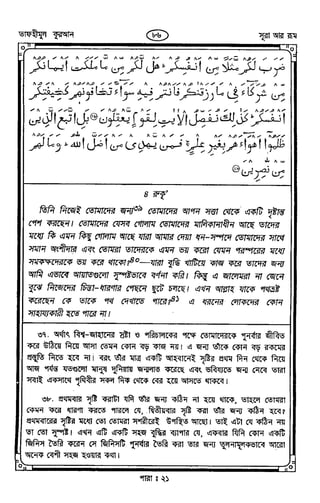 তাফহীমুল কুরআন
৮৬
সূরা আর রূম
ضَرَبَ لَكُمْ مَّثَلًا مِّنْ اَنْفُسِكُمْ ؕ هَلْ لَّكُمْ مِّنْ مَّا مَلَكَتْ اَيْمَانُكُمْ
مِّنْ شُرَكَآءَ فِيْ مَا رَزَقْنٰكُمْ فَاَنْتُمْ فِيْهِ سَوَآءٌ تَخَافُوْنَهُمْ كَخِيْفَتِكُمْ
اَنْفُسَكُمْ ؕ كَذٰلِكَ نُفَصِّلُ الْاٰيٰتِ لِقَوْمٍ يَّعْقِلُوْنَ ۞ بَلِ اتَّبَعَ الَّذِيْنَ
ظَلَمُوْٓا اَهْوَآءَهُمْ بِغَيْرِ عِلْمٍ ۚ فَمَنْ يَّهْدِيْ مَنْ اَضَلَّ اللهُ ؕ وَمَا لَهُمْ
مِّنْ نّٰصِرِيْنَ ۞
৪ রুকূ'
তিনি নিজেই তোমাদের জন্য৩৯ তোমাদের আপন সত্তা থেকে একটি দৃষ্টান্ত
পেশ করছেন। তোমাদের যেসব গোলাম তোমাদের মালিকানাধীন আছে তাদের
মধ্যে কি এমন কিছু গোলাম আছে যারা আমার দেয়া ধন-সম্পদে তোমাদের সাথে
সমান অংশীদার এবং তোমরা তাদেরকে এমন ভয় করো যেমন পরস্পরের মধ্যে
সমকক্ষদেরকে ভয় করে থাকো?৪০—যারা বুদ্ধি খাটিয়ে কাজ করে তাদের জন্য
আমি এভাবে আয়াতগুলো সুস্পষ্টভাবে বর্ণনা করি। কিন্তু এ জালেমরা না জেনে
বুঝে নিজেদের চিন্তা-ধারণার পেছনে ছুটে চলছে। এখন আল্লাহ যাকে পথভ্রষ্ট
করেছেন কে তাকে পথ দেখাতে পারে?৪১ এ ধরনের লোকদের কোন
সাহায্যকারী হতে পারে না।
৩৭. অর্থাৎ বিশ্ব-জাহানের স্রষ্টা ও পরিচালকের পক্ষে তোমাদেরকে পুনর্বার জীবিত
করে উঠিয়ে নিয়ে আসা তেমন কোন বড় কাজ নয়। এ জন্য তাঁকে কোন বড় রকমের
প্রস্তুতি নিতে হবে না। বরং তাঁর মাত্র একটি আহবানেই সৃষ্টির প্রথম দিন থেকে নিয়ে
আজ পর্যন্ত যতগুলো মানুষ দুনিয়ায় জন্মলাভ করেছে এবং ভবিষ্যতে জন্ম নেবে তারা
সবাই একসাথে পৃথিবীর সকল দিক থেকে বের হয়ে আসতে থাকবে।
৩৮. প্রথমবার সৃষ্টি করাটা যদি তাঁর জন্য কঠিন না হয়ে থাকে, তাহলে তোমরা
কেমন করে ধারণা করতে পারলে যে, দ্বিতীয়বার সৃষ্টি করা তাঁর জন্য কঠিন হবে?
প্রথমবারের সৃষ্টির মধ্যে তো তোমরা সশরীরেই উপস্থিত আছো। তাই এটা যে কঠিন নয়
তা তো সুস্পষ্ট। এখন এটি একটি সহজ বুদ্ধির ব্যাপার যে, একবার যিনি কোন একটি
জিনিস তৈরি করেন সে জিনিসটি পুনর্বার তৈরি করা তার জন্য তুলনামূলকভাবে আরো
অনেক বেশী সহজ হওয়ার কথা।
পারা : ২১